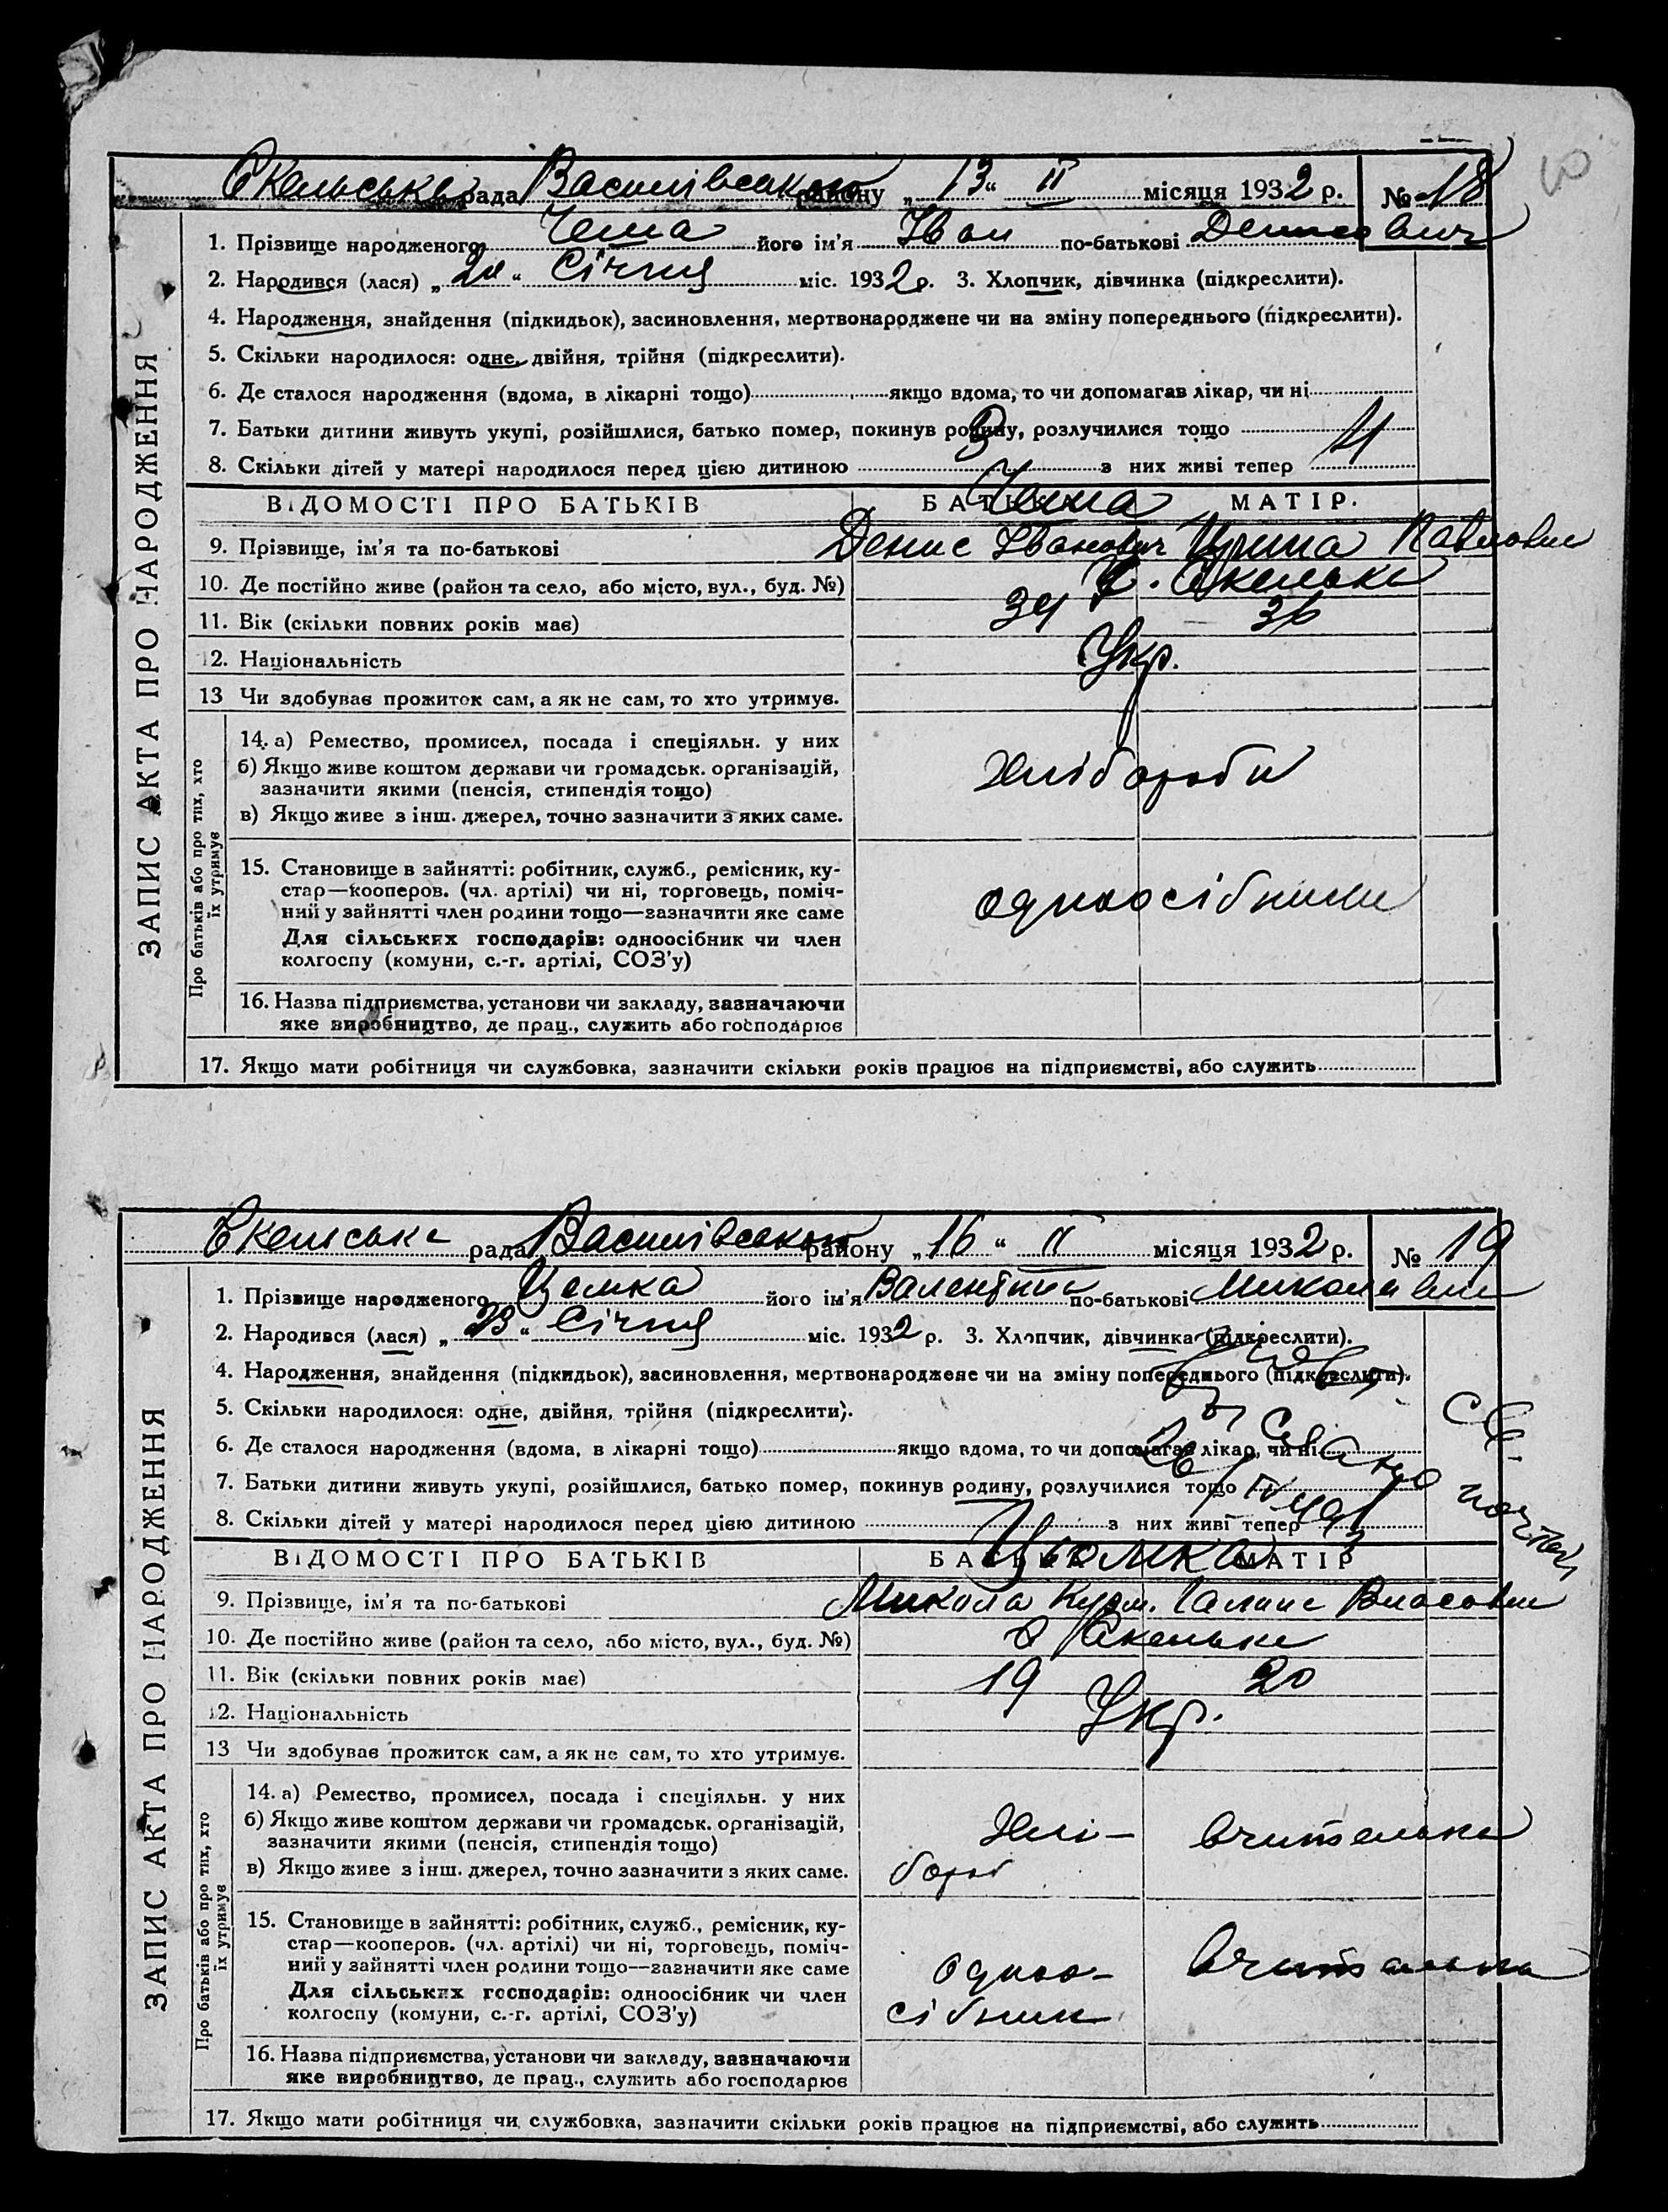 Скельська рада Василівського району „13“ II місяця 1932 р. № 18
ЗАПИС АКТА ПРО НАРОДЖЕННЯ
1. Прізвище народженого Чеша його ім'я Іван по-батькові Денисович
2. Народився (лася) „ “ Січня міс. 1932 р. 3. Хлопчик, дівчинка (підкреслити).
4. Народження, знайдення (підкидьок), засиновлення, мертвонароджене чи на зміну попереднього (підкреслити).
5. Скільки народилося: одне, двійня, трійня (підкреслити).
6. Де сталося народження (вдома, в лікарні тощо) якщо вдома, то чи допомагав лікар, чи ні
7. Батьки дитини живуть укупі, розійшлися, батько помер, покинув родину, розлучилися тощо
8. Скільки дітей у матері народилося перед цією дитиною 3 з них живі тепер 4
ВІДОМОСТІ ПРО БАТЬКІВ БАТЬКА Чеша МАТІР.
9. Прізвище, ім'я та по-батькові Денис Іванович Ирина Павловна
10. Де постійно живе (район та село, або місто, вул., буд. №) с. Скельки
11. Вік (скільки повних років має) 34 36
12. Національність Укр.
13 Чи здобуває прожиток сам, а як не сам, то хто утримує.
Про батьків або про тих, хто їх утримує
14. а) Ремество, промисел, посада і спеціяльн. у них
б) Якщо живе коштом держави чи громадськ. організацій,
зазначити якими (пенсія, стипендія тощо) Хлібороби
в) Якщо живе з інш. джерел, точно зазначити з яких саме.
15. Становище в зайнятті: робітник, служб., ремісник, ку-
стар—кооперов. (чл. артілі) чи ні, торговець, поміч-
ний у зайнятті член родини тощо—зазначити яке саме одноосібники
Для сільських господарів: одноосібник чи член
колгоспу (комуни, с.-г. артілі, СОЗ'у)
16. Назва підприємства, установи чи закладу, зазначаючи
яке виробництво, де прац., служить або господарює
17. Якщо мати робітниця чи службовка, зазначити скільки років працює на підприємстві, або служить
Скельська рада Василівського району „16“ II місяця 1932 р. № 19
ЗАПИС АКТА ПРО НАРОДЖЕННЯ
1. Прізвище народженого Цьомка його ім'я Валентина по-батькові
2. Народився (лася) „23“ Січня міс. 1932 р. 3. Хлопчик, дівчинка (підкреслити).
4. Народження, знайдення (підкидьок), засиновлення, мертвонароджене чи на зміну попереднього (підкреслити).
5. Скільки народилося: одне, двійня, трійня (підкреслити).
6. Де сталося народження (вдома, в лікарні тощо) якщо вдома, то чи допомагав лікар, чи ні
7. Батьки дитини живуть укупі, розійшлися, батько помер, покинув родину, розлучилися тощо
8. Скільки дітей у матері народилося перед цією дитиною з них живі тепер
ВІДОМОСТІ ПРО БАТЬКІВ БАТЬКА Цьомка МАТІР
9. Прізвище, ім'я та по-батькові Микола Галина Власовна
10. Де постійно живе (район та село, або місто, вул., буд. №) с Скельки
11. Вік (скільки повних років має) 19 20
12. Національність Укр.
13 Чи здобуває прожиток сам, а як не сам, то хто утримує.
Про батьків або про тих, хто їх утримує
14. а) Ремество, промисел, посада і спеціяльн. у них
б) Якщо живе коштом держави чи громадськ. організацій, Хлі- вчителька
зазначити якими (пенсія, стипендія тощо)
в) Якщо живе з інш. джерел, точно зазначити з яких саме. бороб
15. Становище в зайнятті: робітник, служб., ремісник, ку-
стар—кооперов. (чл. артілі) чи ні, торговець, поміч-
ний у зайнятті член родини тощо—зазначити яке саме одноо- вчителька
Для сільських господарів: одноосібник чи член
колгоспу (комуни, с.-г. артілі, СОЗ'у) сібник
16. Назва підприємства, установи чи закладу, зазначаючи
яке виробництво, де прац., служить або господарює
17. Якщо мати робітниця чи службовка, зазначити скільки років працює на підприємстві, або служить